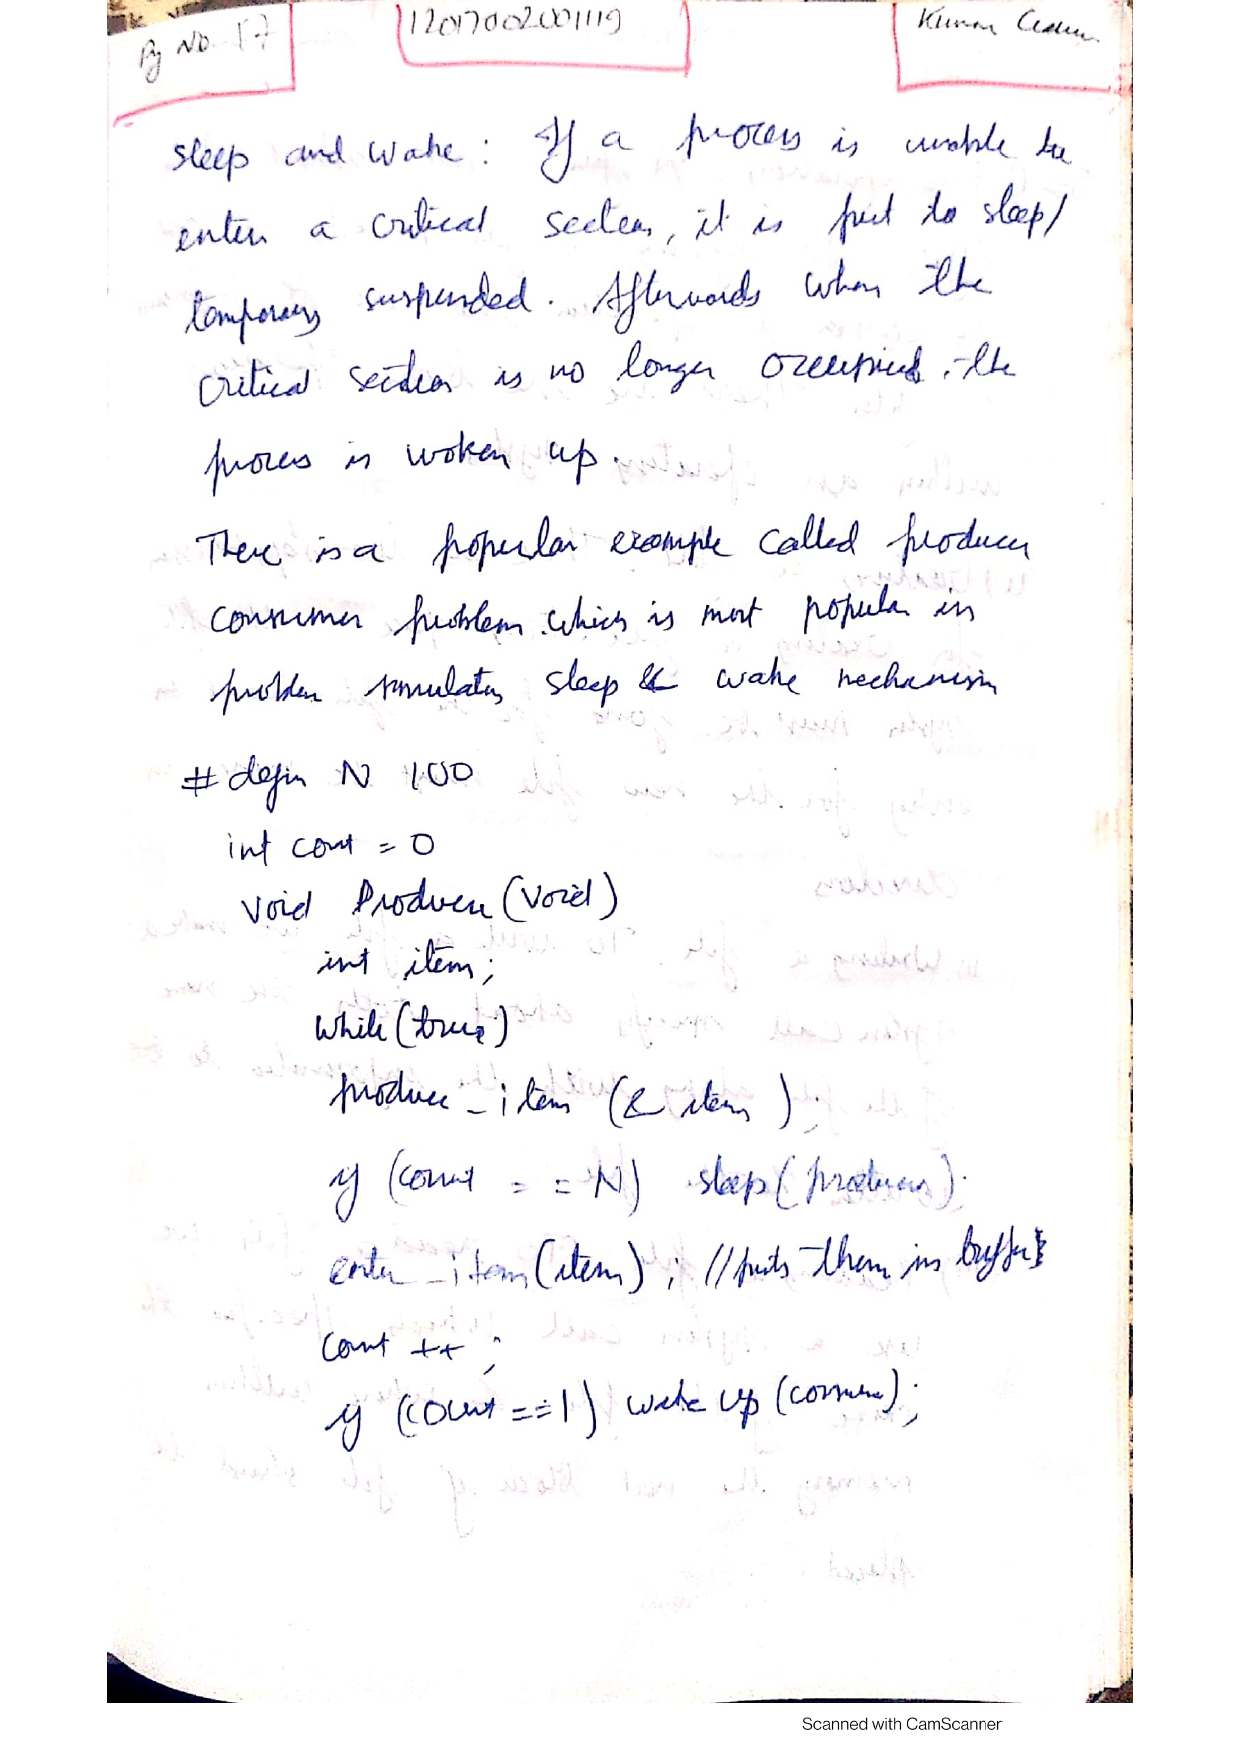 Pg No 17
12017002001119
Kumar
sleep and wake : If a process is unable to
enter a critical section, it is put to sleep/
temporary suspended. Afterwards when the
critical section is no longer occupied, the
process is woken up.
There is a popular example called producer
consumer problem which is most popular in
problem simulates sleep & wake mechanism
# defin N 100
int cont = 0
void Producer (void)
int item;
while (true)
produce_item (& item );
if (count = = N) sleep( producer).
enter_item (item) ; // puts them in buffer
count ++ ;
if (count == 1) wake up (consumer);
Scanned with CamScanner